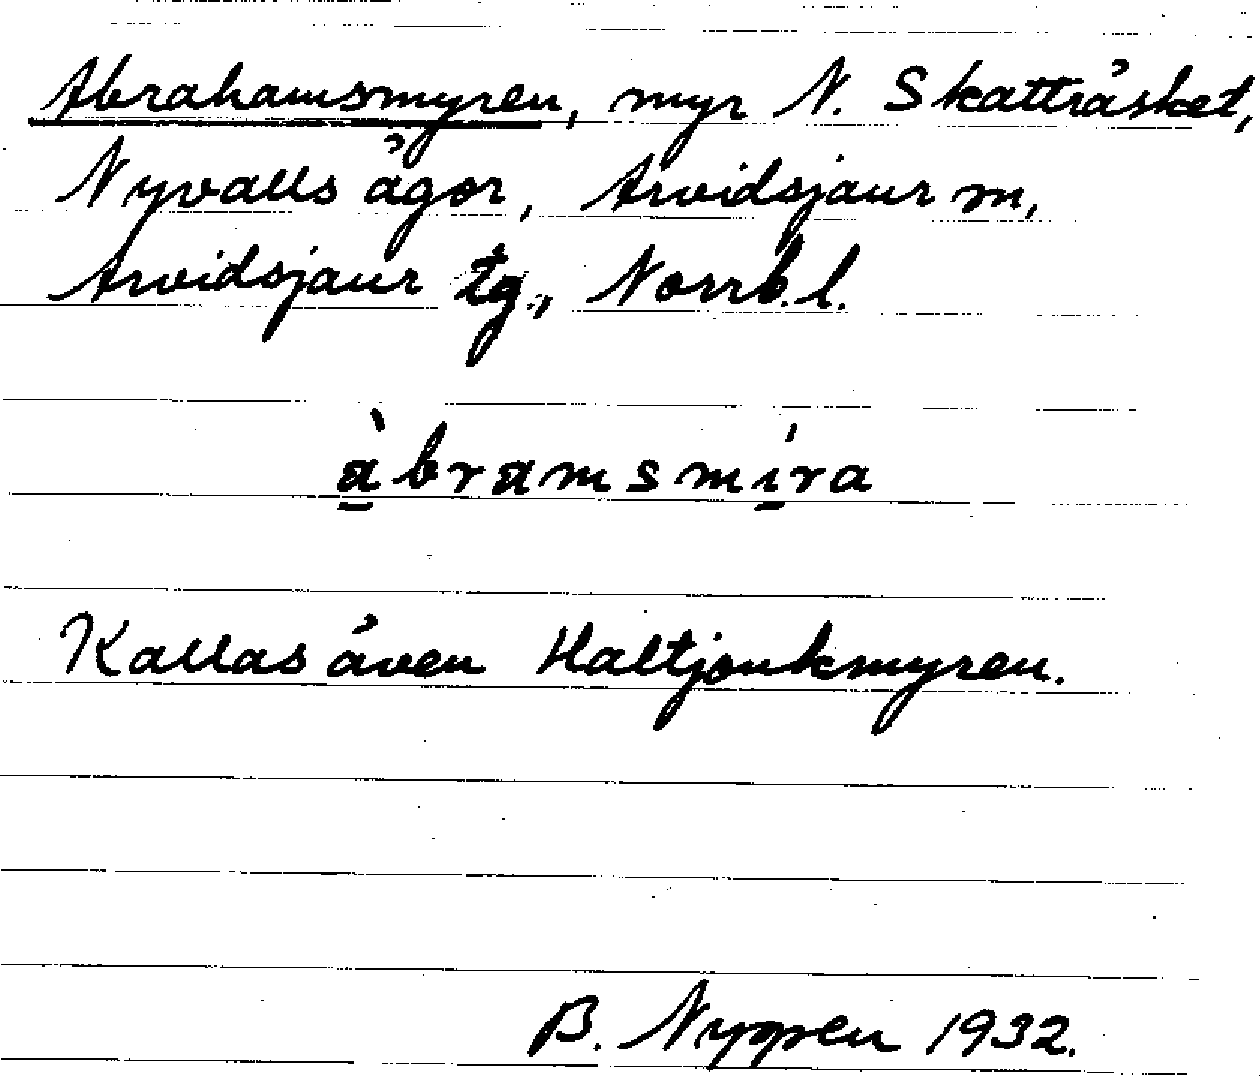 Abrahamsmyren, myr N. Skatträsket,
Nyvalls ägor, Arvidsjaur sn,
Arvidsjaur tg., Norrb. l.
àbramsmíra
Kallas även Haltjonkmyren.
B. Nyppen 1932.